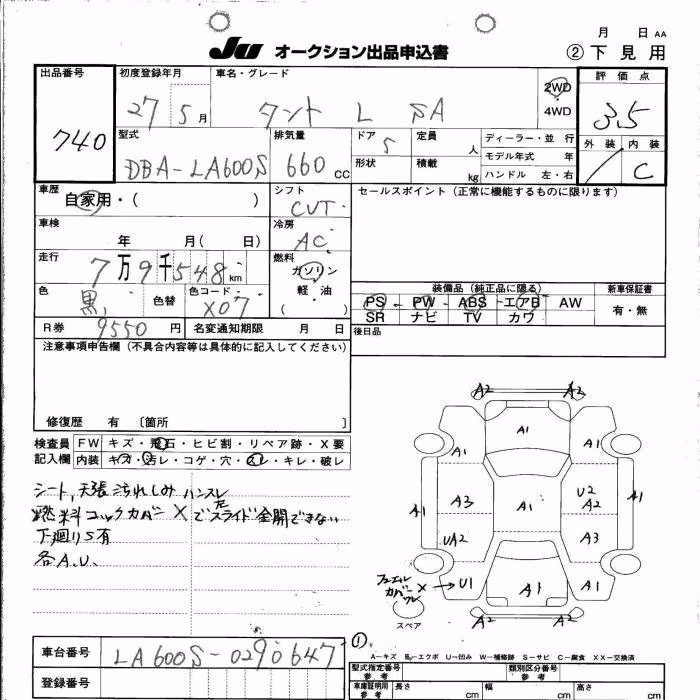 月 日 AA
JU オークション出品申込書 ②下見用
出品番号 740
初度登録年月 27 5月
車名・グレード タント L SA
2WD
4WD
評価点 3.5
外装 内装 C
型式 DBA-LA600S
排気量 660 cc
ドア 5
形状
定員 人
積載 kg
ディーラー・並 行
モデル年式 年
ハンドル 左・右
車歴 自家用・( )
シフト CVT
セールスポイント(正常に機能するものに限ります)
車検 年 月( 日)
冷房 AC
走行 7万9千548km
燃料 ガソリン
軽・油
( )
色 黒 色替 色コード X07
装備品(純正品に限る) 新車保証書
PS PW ABS エアB AW 有・無
SR ナビ TV カワ
R券 9550円 名変通知期限 月 日
後日品
注意事項申告欄(不具合内容等は具体的に記入してください)
修復歴 有 〔箇所 〕
検査員 FW キズ・飛石・ヒビ割・リペア跡・X要
記入欄 内装 キズ・汚レ・コゲ・穴・スレ・キレ・破レ
シート,天張汚れしみ ハンスレ
燃料コックカバーXでスライド全開できない
た
下廻りS有
各A.U.
A2 A2
A1
A1 A1
A3 A1 U2 A2
A1 A1
UA2 A3
フューエルカバーワレ X→U1 A1 A1
A2 A2
スペア
①
A-キズ E-エクボ U-凹み W-補修跡 S-サビ C-腐食 XX-交換済
車台番号 LA600S-0290647
登録番号
型式指定番号 参考 類別区分番号 参考
車庫証明用 参考 長さ cm 幅 cm 高さ cm